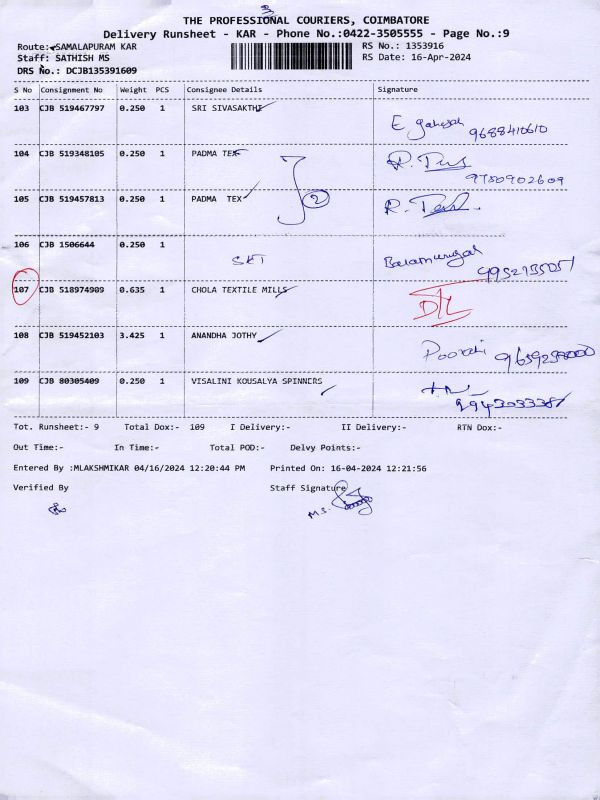 THE PROFESSIONAL COURIERS, COIMBATORE
Delivery Runsheet - KAR - Phone No.:0422-3505555 - Page No.:9
Route: SAMALAPURAM KAR
RS No.: 1353916
Staff: SATHISH MS
RS Date: 16-Apr-2024
DRS No.: DCJB135391609
S No Consignment No Weight PCS Consignee Details Signature
103 CJB 519467797 0.250 1 SRI SIVASAKTHI
9688410610
104 CJB 519348105 0.250 1 PADMA TEX
9750902609
2
105 CJB 519457813 0.250 1 PADMA TEX
106 CJB 1506644 0.250 1
SKT
Balamurugan
107 CJB 518974909 0.635 1 CHOLA TEXTILE MILLS
D/L
108 CJB 519452103 3.425 1 ANANDHA JOTHY
109 CJB 80305409 0.250 1 VISALINI KOUSALYA SPINNERS
Tot. Runsheet:- 9 Total Dox:- 109 I Delivery:- II Delivery:- RTN Dox:-
Out Time:- In Time:- Total POD:- Delvy Points:-
Entered By :MLAKSHMIKAR 04/16/2024 12:20:44 PM Printed On: 16-04-2024 12:21:56
Verified By Staff Signature
M.S.